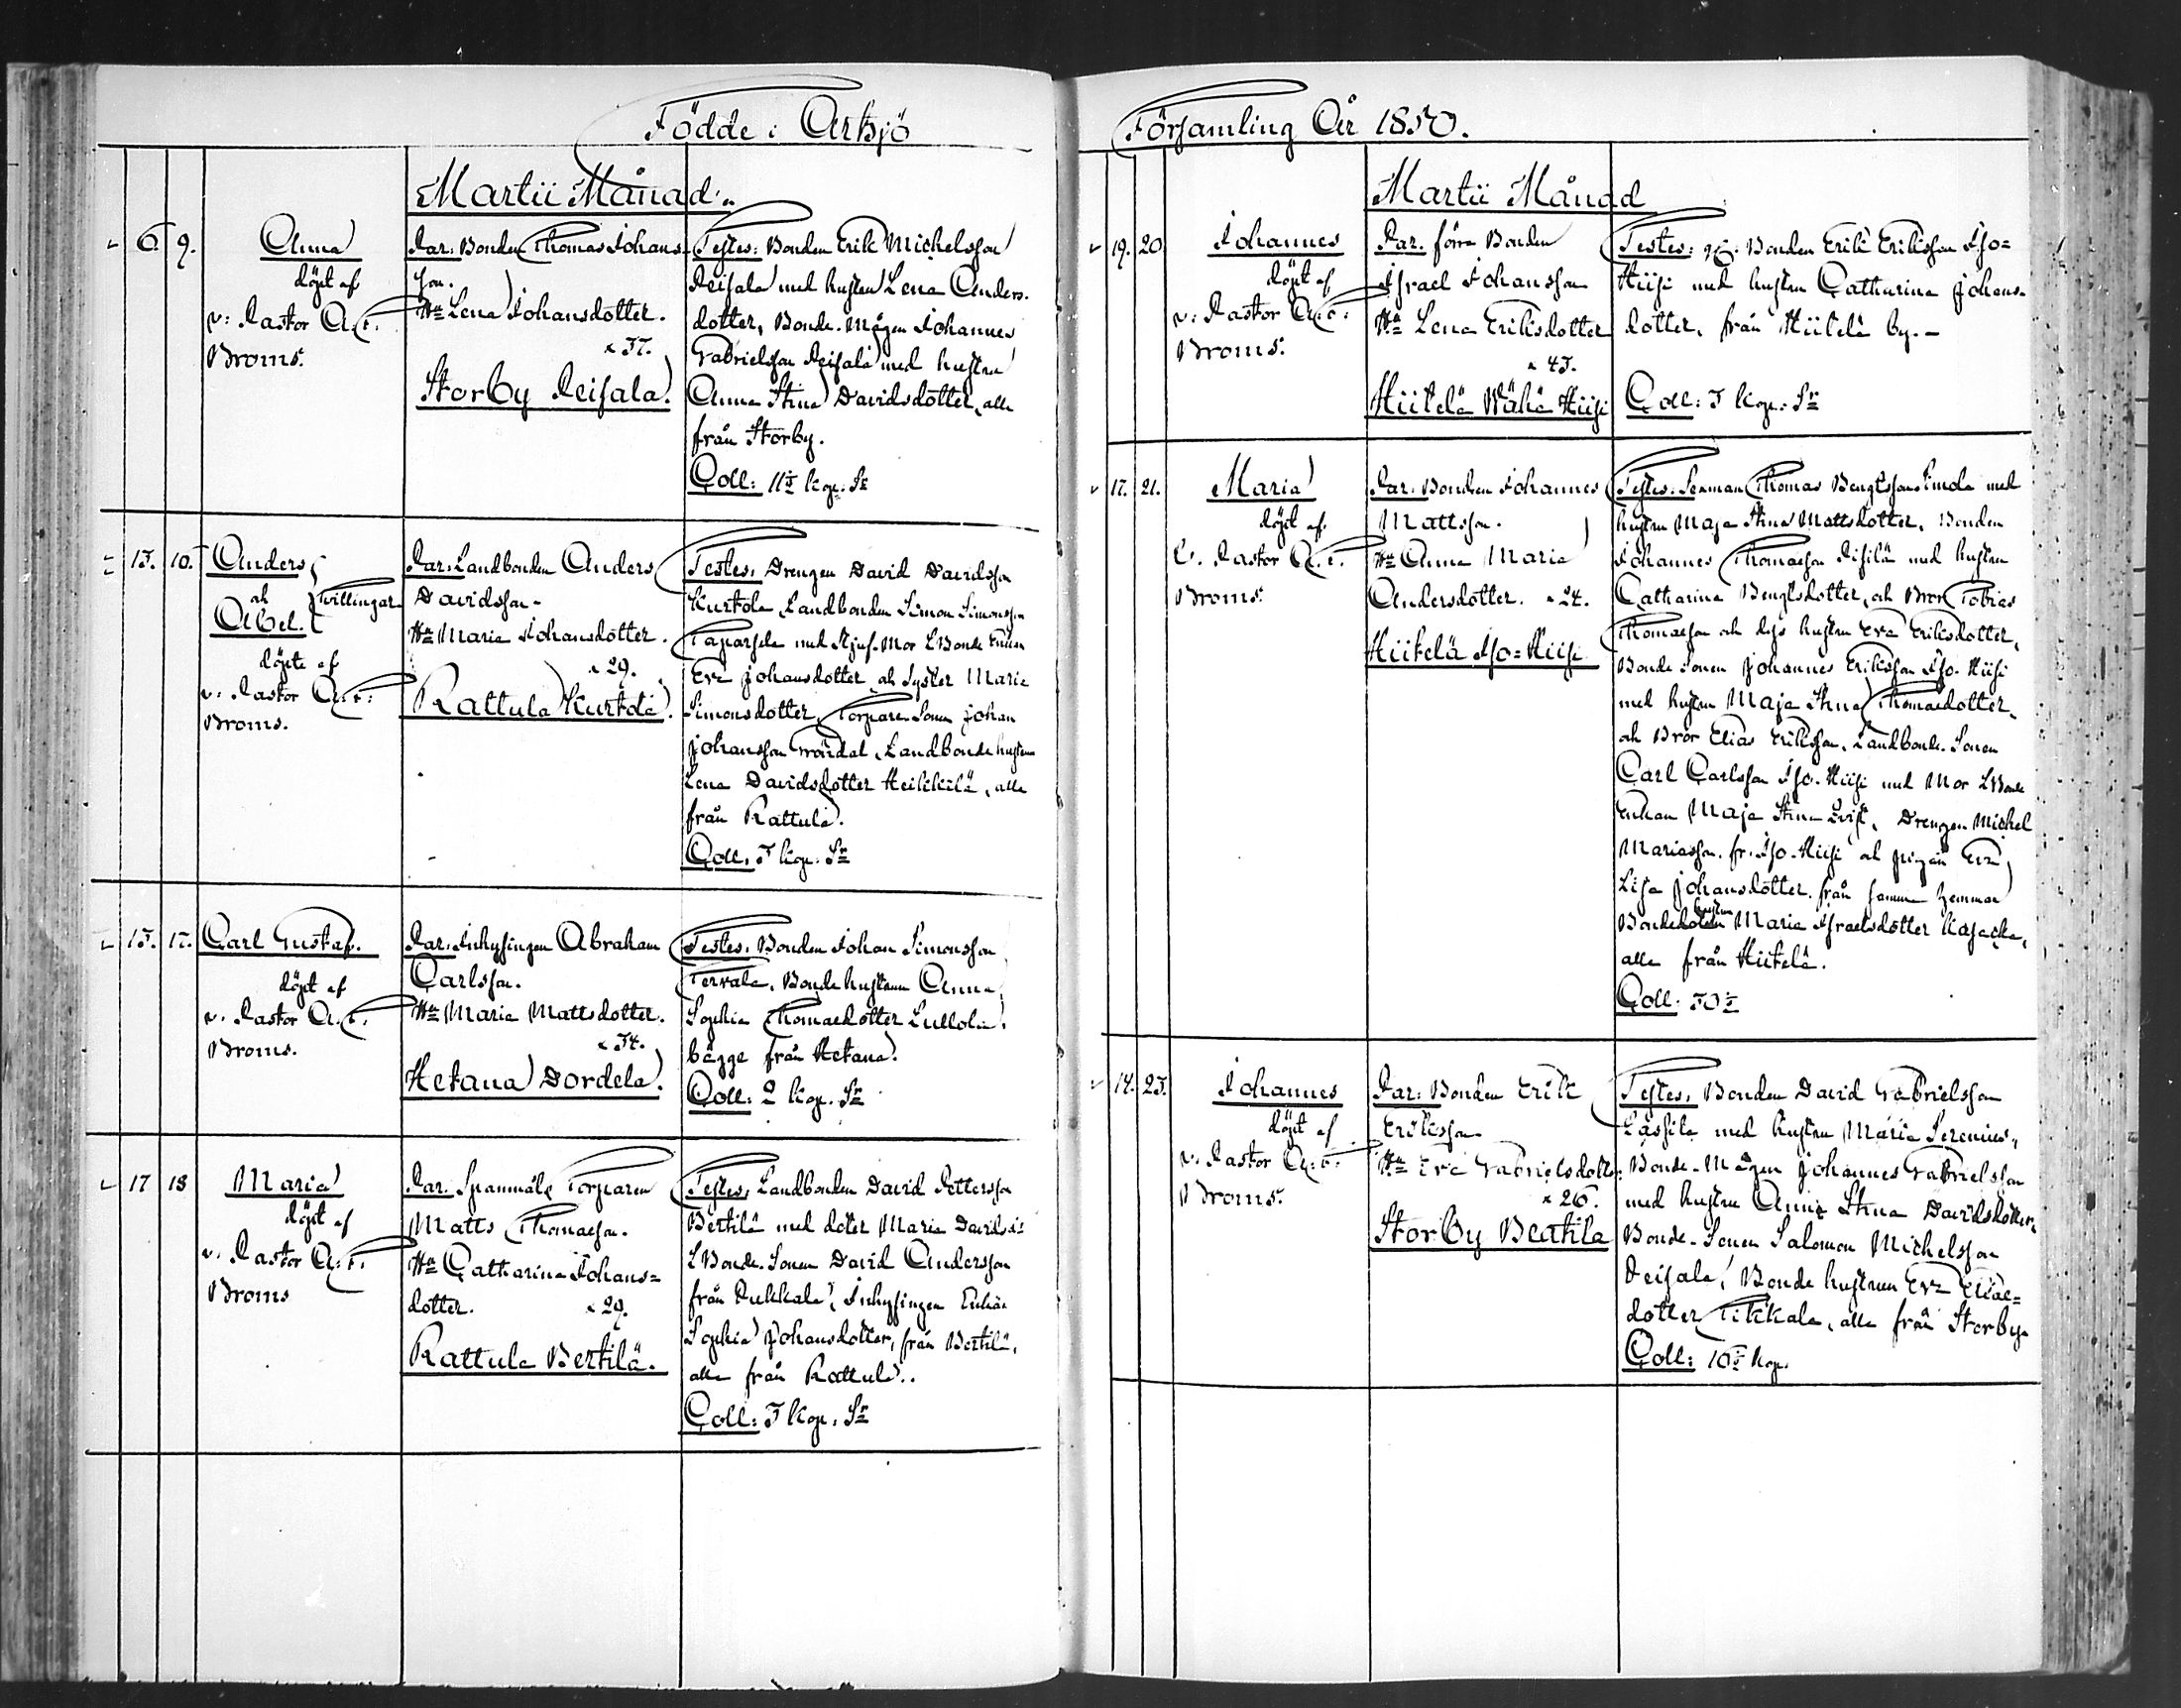 Födde i Artsjö
Martii Månad.
6. 9. Anna
döpt af
v: Pastor A. F.
Broms.
Par: Bonden Thomas Johans-
son.
Hu Lena Johansdotter.
x 37.
Storby Peisala.
Testes: Bonden Erik Michelsson
Peisala med hustru Lena Anders-
dotter, Bonde-Mågen Johannes
Gabrielsson Peisala med hustru
Anna Stina Davidsdotter, alle
från Storby.
Coll: kop. Sr
13. 10. Anders
ah Tvillingar
Abel.
döpte af
v: Pastor A. F.
Broms.
Par: Landbonden Anders
Davidsson.
Hu Maria Johansdotter.
x 29.
Rattula Kurtola.
Testes: Drengen David Davidsson
Kurtola, Landbonden Simon Simonsson
med Mor LBonde Enkan
Eva Johansdotter ah Syster Maria
Simonsdotter, Torpare Sonen Johan
Johansson Landbonde hustrun
Lena Davidsdotter Heikkilä, alle
från Rattula.
Coll. 3 kop. Sr
15. 17. Carl Gustaf.
döpt af
v. Pastor A. F.
Broms.
Par: Inhysingen Abraham
Carlsson.
Hu Maria Mattsdotter.
x 34.
Hetana Dordela.
Testes: Bonden Johan Simonsson
Tervala, Bonde hustrun Anna
Sophia Thomaedotter Lullola,
bägge från Hetana.
Coll: 2 kop. Sr
17 18 Maria
döpt af
v. Pastor A. F.
Broms
Par. Spanmåls Torparen
Matts Thomaeson.
Hu Catharina Johans=
dotter. x 29.
Rattula Bertilä.
Testes: Landbonden David Pettersson
Bertilä med doter Maria
LBonde-Sonen David Andersson
från Pukkala, Inhysingen Enkan
Sophia Johansdotter, från Bertilä,
alle från Rattula..
Coll: 3 kop. Sr
Församling År 1850.
Martii Månad
19. 20 Johannes
döpt af
v: Pastor A. F.
Broms.
Par. förra Bonden
Israel Johansson
Hu Lena Eriksdotter
x 43.
Hiitelä Wähä Hiisi
Testes: Bonden Erik Eriksson Iso=
Hiisi med hustru Catharina Johans-
dotter, från Hiitelä by.-
Coll: 3 kop. Sr
17. 21. Maria
döpt af.
v. Pastor A. F.
Broms.
Par: Bonden Johannes
Mattsson.
Hu Anna Maria
Andersdotter. x 24.
Hiitelä Iso=Hiisi
Testes: Thomas Bengtsson med
hustru Maja Stina Mattsdotter, Bonden
Johannes Thomaeson med hustru
Catharina Bengtsdotter, ah Bror Tobias
Thomaeson ah dess hustru Eva Eriksdotter,
Bonde Sonen Johannes Eriksson Iso-Hiisi
med hustru Maja Stina Thomaedotter,
ah Bror Elias Eriksson, Landbonde-Sonen
Carl Carlsson Iso-Hiisi med Mor LBonde
Enkan Maja Stina Drengen Michel
Mariasson. fr. Iso-Hiisi ah pigan Eva
Lisa Johansdotter från samma hemman
Bonde hustru Maria Israelsdotter Kasacka,
alle från Hiitelä.
Coll: 50
14. 23. Johannes
döpt af
v. Pastor A. F.
Broms.
Par: Bonden Erik
Eriksson
Hu Eva Gabrielsdotter
x 26.
Storby Bertila
Testes: Bonden David Gabrielsson
Lassila med hustru Maria Serenius,
Bonde-Mågen Johannes Gabrielsson
med hustru Anna Stina Davidsdotter,
Bonde-Sonen Salomon Michelsson
Peisala, Bonde hustrun Eva Eliae=
dotter Tikkala, alle från Storby
Coll: 10 kop.